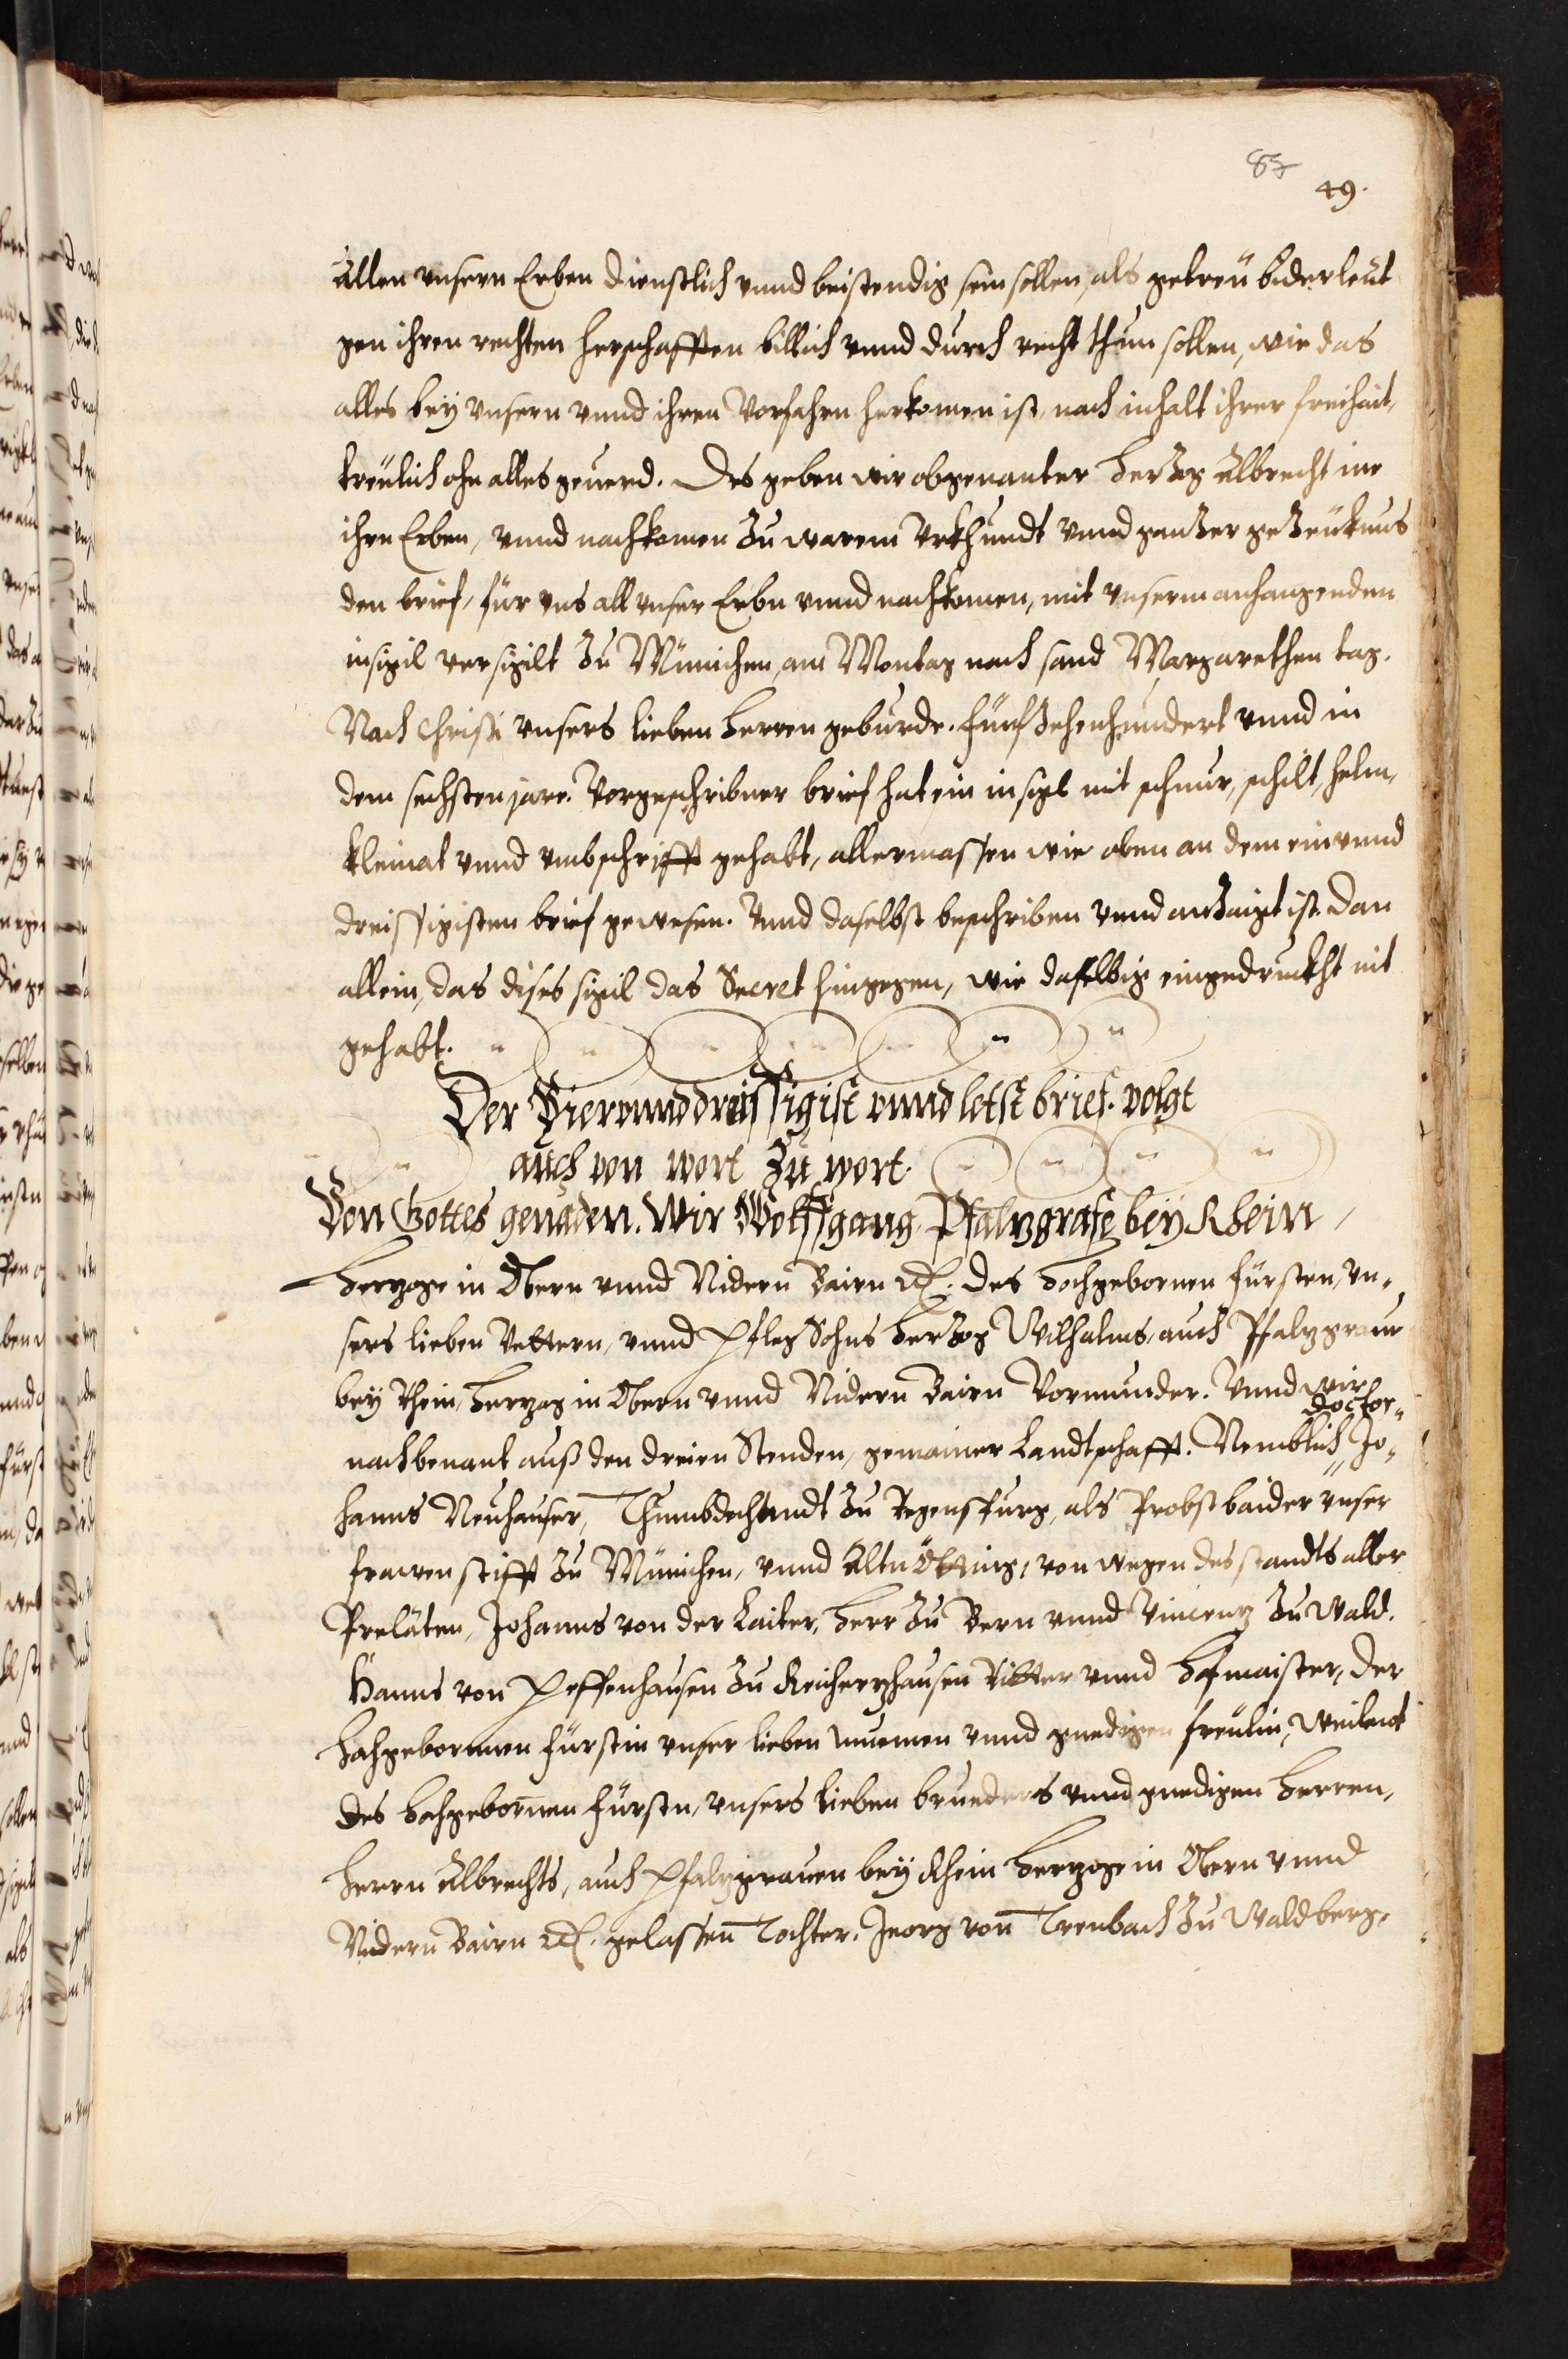 85
49.
Allen vnsern Erben dienstlich vnnd beistendig sein sollen, als getreü biderleüt
gen ihren rechten herschafften billich vnnd durch recht thun sollen, wie das
alles bey vnsern vnnd ihren Vorfahrn herkomen ist, nach inhalt ihrer freihait,
treülich ohn alles geuerd. Des geben wir obgenanter Herzog Albrecht ine
ihrn Erben, vnnd nachkomen zu warem Vrkhundt vnnd ganzer gezeüknus
den brief, für vns all vnser Erbn vnnd nachkomen, mit vnserm anhangenden
insigil versigilt zu München, am Montag nach sand Margarethen tag.
Nach Christi vnsers lieben Herren geburde. fünfzehenhundert vnnd in
dem sechsten jare. Vorgeschribner brief hat ein insigl mit schnur, schilt, helm,
kleinat vnnd vmbschrifft gehabt, allermassen wie oben an dem einvnnd
dreissigisten brief gewesen. Vnnd daselbst beschriben vnnd anzaigt ist. Dan
allein, das dises sigil das Secret hingegen, wie daselbig eingedruckht nit
gehabt.
Der Vierunnddreissigist vnnd letst brief. volgt
auch von wort zu wort.
Von Gottes genaden. Wir Wolffgang, Pfalzgrafe bey Rhein,
Herzoge in Obern vnnd Nidern Bairn etc. des Hochgebornen fürsten, vn-
sers lieben Vettern, vnnd Pfleg Sohns Herzog Wilhalms, auch Pfalzgraue
bey Rhein, Herzog in Obern vnnd Nidern Bairn Vormunder. Vnnd wir
Doctor
nachbenant auß den dreien Stenden, gemainer Landtschafft. Nemblich Jo-
hanns Neuhauser, Thumbdechandt zu Regenspurg, als Probst baider vnser
frawen stifft zu München, vnnd Altn Ötting, von wegen des standts aller
Preläten, Johanns von der Laiter, Herr zu Bern vnnd Vincenz zu Wald.
Hanns von Peffenhausen zu Reicherzhausen Ritter vnnd Hofmaister, der
Hochgebornnen fürstin vnser lieben muemen vnnd gnedigen freülin, weilent
des Hochgebornnen fürstn, vnsers lieben brueders vnnd gnedigen Herren,
Herrn Albrechts, auch Pfalzgrauen bey Rhein Herzoge in Obern vnnd
Nidern Bairn etc. gelassen Tochter. Jeorg von Trenbach zu Waldberg,